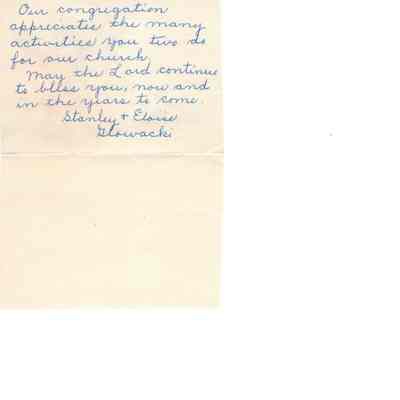 Our congregation
appreciates the many
activities you two do
for our church.
May the Lord continue
to bless you, now and
in the years to come.
Stanley & Eloise
Glowacki